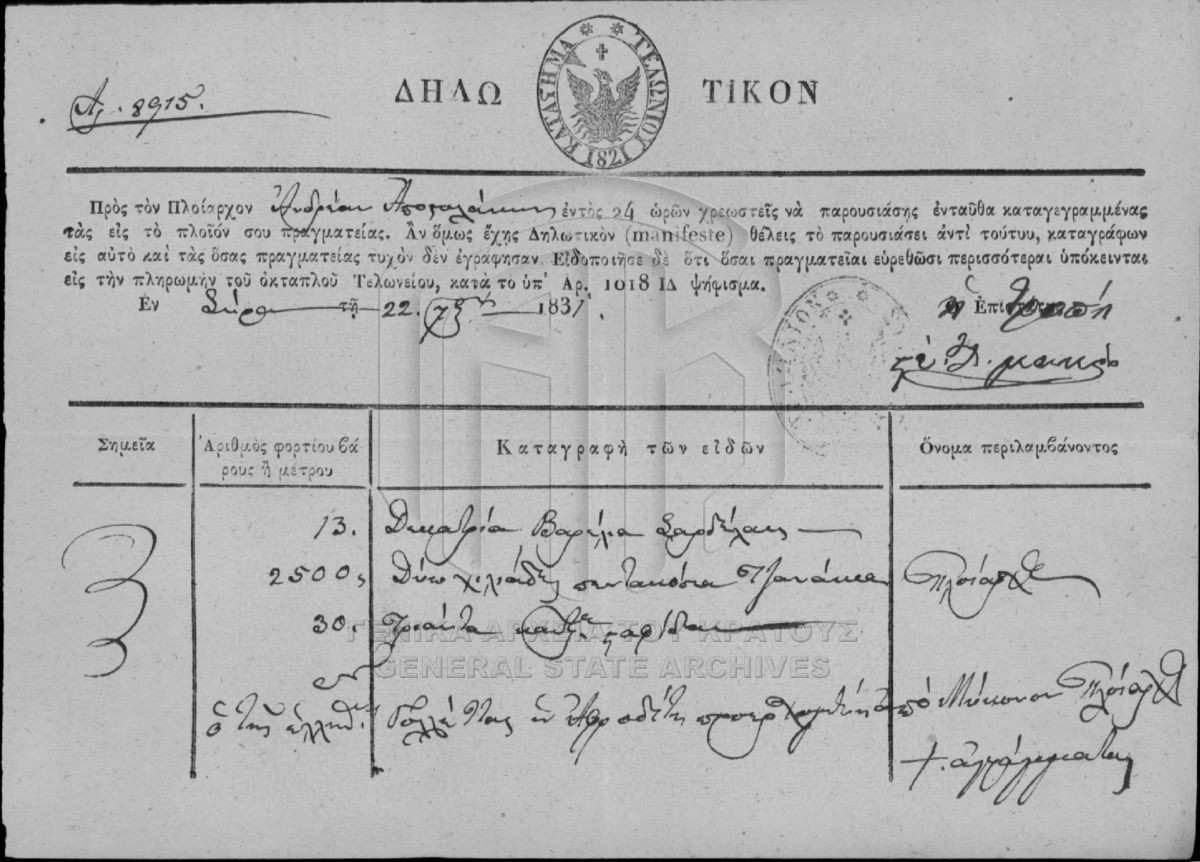 Αρ. 8915.
ΔΗΛΩ
ΤΙΚΟΝ
ΚΑΤΑΣΤΗΜΑ ΤΕΛΩΝΙΟΥ 1821
Πρὸς τὸν Πλοίαρχον Ἀνδρέαν ἐντὸς 24 ὡρῶν χρεωστεῖς νὰ παρουσιάσῃς ἐνταῦθα καταγεγραμμένας
τὰς εἰς τὸ πλοῖόν σου πραγματείας. Ἂν ὅμως ἔχῃς Δηλωτικὸν (manifeste) θέλεις τὸ παρουσιάσει ἀντὶ τούτυυ, καταγράφων
εἰς αὐτὸ καὶ τὰς ὅσας πραγματείας τυχὸν δὲν ἐγράφησαν. Εἰδοποιῆσε δὲ ὅτι ὅσαι πραγματεῖαι εὑρεθῶσι περισσότεραι ὑπόκεινται
εἰς τὴν πληρωμὴν τοῦ ὀκταπλοῦ Τελωνείου, κατὰ τὸ ὑπ' Αρ. 1018 ΙΔ ψήφισμα.
Ἐν Σύρῳ τῇ 22. 7βρ 1831
Ἐπιτροπή
Σημεῖα
Ἀριθμὸς φορτίου βά-
ρους ἢ μέτρου
Καταγραφὴ τῶν εἰδῶν
Ὄνομα περιλαμβάνοντος
13. Δεκατρία Βαρέλια Σαρδέλαις
2500, δύω χιλιάδες πεντακόσια τζανάκια Πλοίαρχος
30. Τριάντα
ΓΕΝΙΚΑ ΑΡΧΕΙΑ ΤΟΥ ΚΡΑΤΟΥΣ
GENERAL STATE ARCHIVES
ὁ τῆς ἑλλην. Γολέττας ἡ Ἀφροδίτη ἀπὸ Μύκονον Πλοίαρχος
+ ἀγράμματος